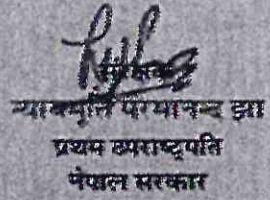 न्यायमूर्ति परमानन्द झा
प्रथम उपराष्ट्रपति
नेपाल सरकार